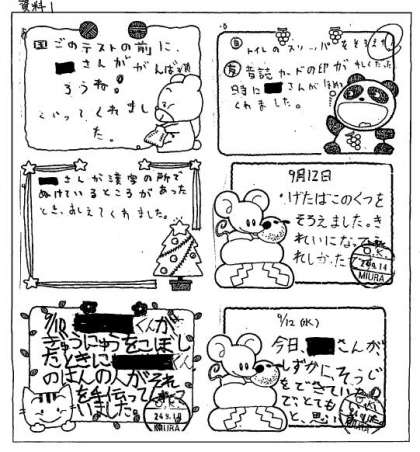 資料1
国ごのテストの前に、
さんががんば
ろうね。
といってくれまし
た。
トイレのスリッパをそろえ
音読カードの印がわすれてた
時に さんがほめて
くれました。
さんが漢字の所で
ぬけているところがあった
とき、おしえてくれました。
9月12日
げたばこのくつを
そろえました。き
れいになって
れしかった
24.9.14
MIURA
9/10、 くんが
ぎゅうにゅうをこぼし
たときに くん
のはんの人がそれ
を手伝って
いました。
24.9.
MIURA
9/12(水)
今日、 さんが
しずかにそうじ
をできていた
で、とても
と、思い
MIURA